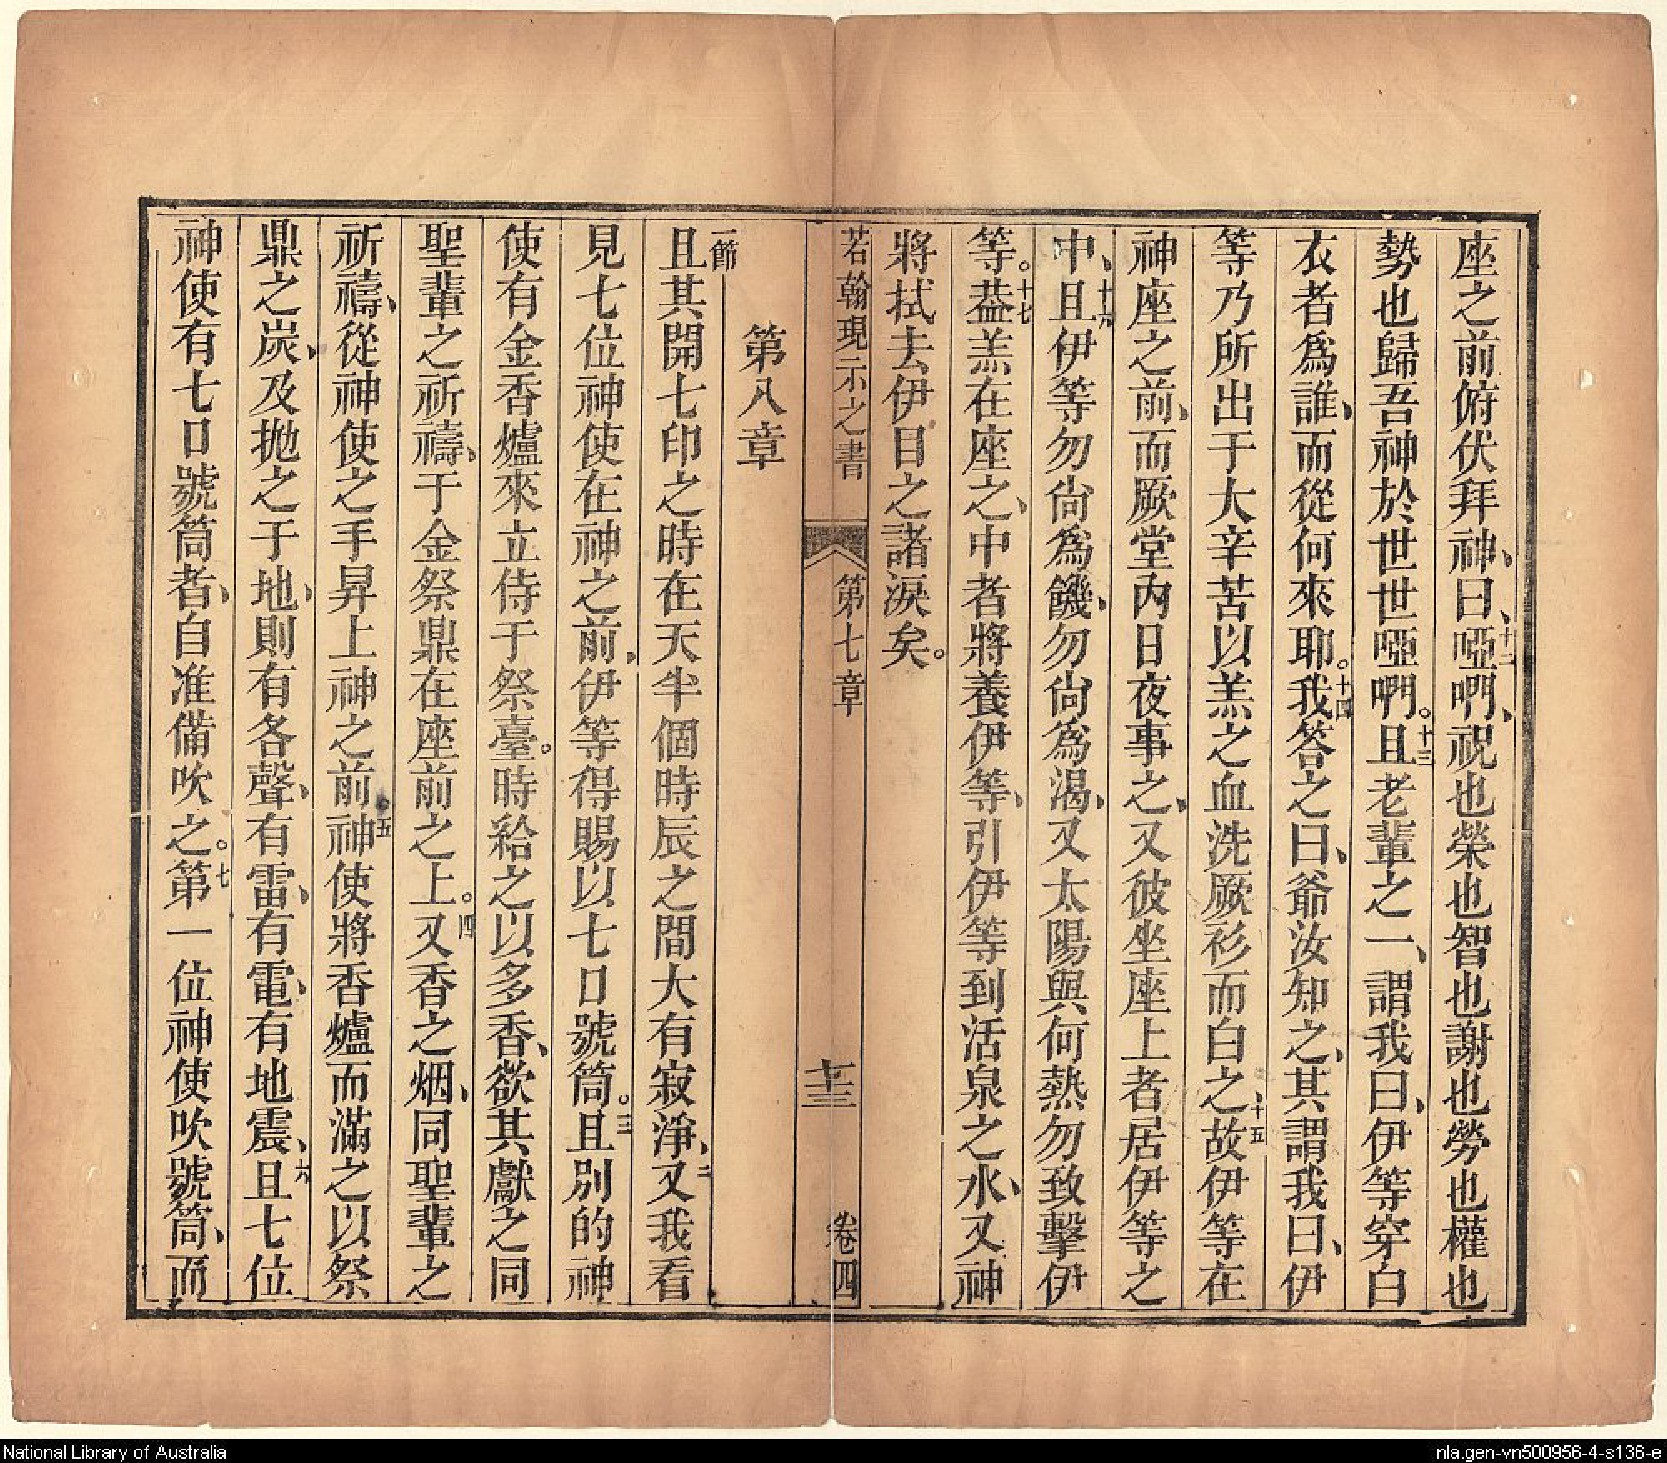 座之前俯伏拜神、曰、十二啞啊、祝也榮也智也謝也勞也權也
勢也歸吾神於世世啞啊。十三且老輩之一、謂我曰、伊等穿白
衣者爲誰、而從何來耶。十四我答之曰、爺汝知之、其謂我曰、伊
等乃所出于大辛苦以羔之血洗厥衫而白之、十五故伊等在
神座之前、而厥堂內日夜事之、又彼坐座上者居伊等之
中、十六且伊等勿尙爲饑、勿尙爲渴、又太陽與何熱勿致擊伊
等。十七葢羔在座之、中者將養伊等、引伊等到活泉之水、又神
將拭去伊目之諸淚矣。
若翰現示之書 第七章 十三 卷四
第八章
一節且其開七印之時在天半個時辰之間大有寂淨、二又我看
見七位神使在神之前、伊等得賜以七口號筒。三且別的神
使有金香爐來立侍于祭臺。時給之以多香、欲其獻之同
聖輩之祈禱、于金祭鼎在座前之上。四又香之烟、同聖輩之
祈禱、從神使之手昇上神之前。五神使將香爐而滿之以祭
鼎之炭、及拋之于地、則有各聲、有雷、有電、有地震、六且七位
神使有七口號筒者、自准備吹之。七第一位神使吹號筒、而
National Library of Australia
nla.gen-vn500956-4-s136-e